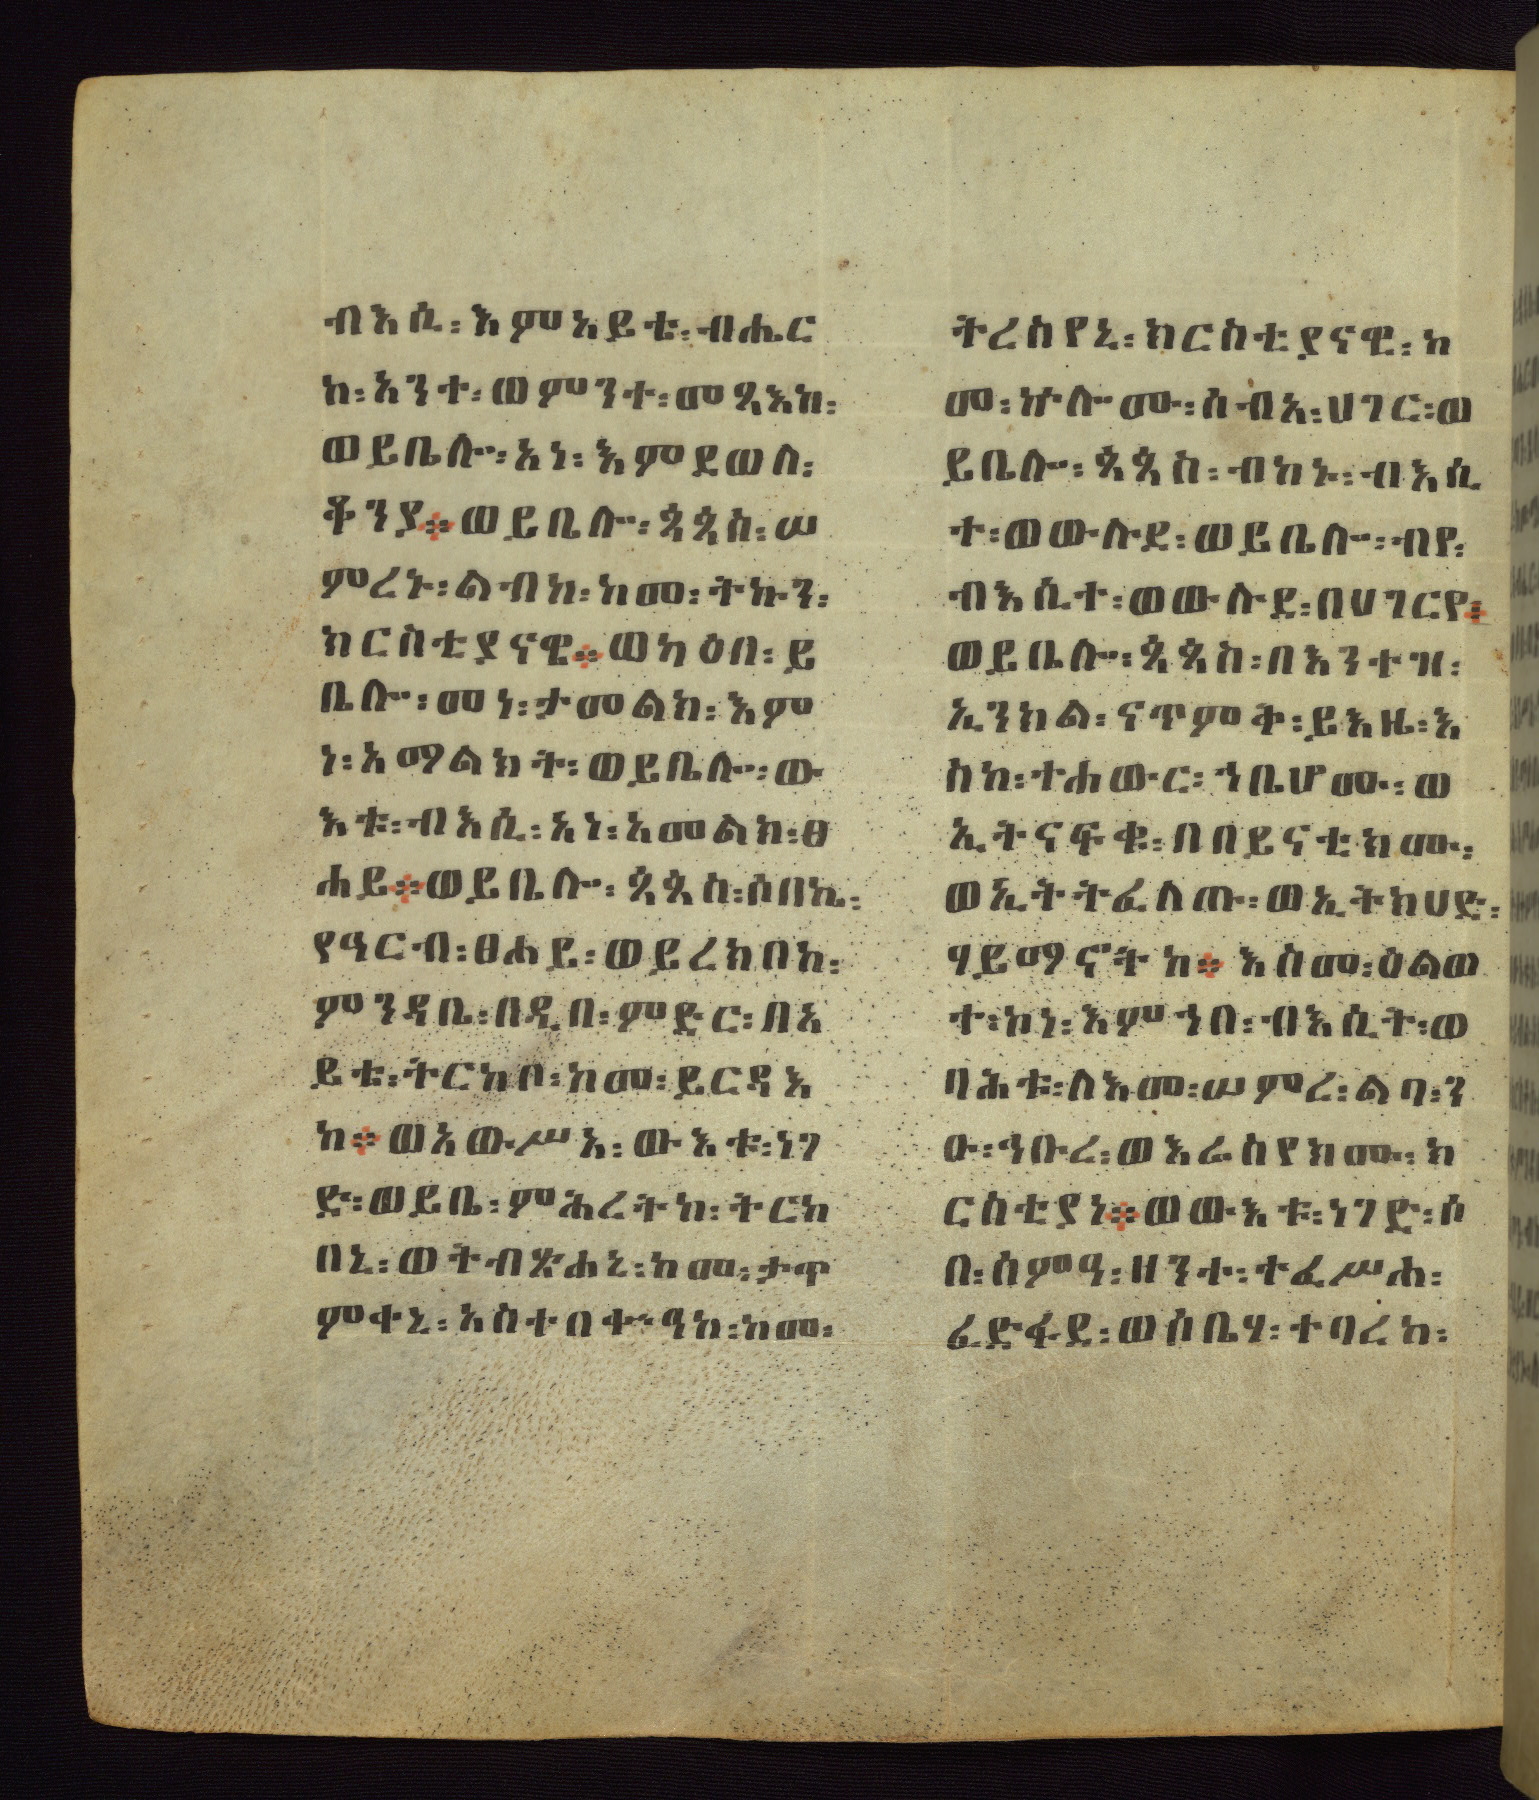 ብእሲ፡እምአይቴ፡ብሔር
ከ፡አንተ፡ወምንተ፡መጻእከ፡
ወይቤሎ፡አነ፡እምደወለ፡
ቶንያ፨ወይቤሎ፡ጳጳስ፡ሠ
ምረኑ፡ልብከ፡ከመ፡ትኩን፡
ክርስቲያናዊ፨ወካዕበ፡ይ
ቤሎ፡መነ፡ታመልክ፡እም
ነ፡አማልክት፡ወይቤሎ፡ው
እቱ፡ብእሲ፡አነ፡አመልክ፡ፀ
ሐይ፨ወይቤሎ፡ጳጳስ፡ሶበኬ፡
የዓርብ፡ፀሐይ፡ወይረክበከ፡
ምንዳቤ፡በዲበ፡ምድር፡በአ
ይቴ፡ትርከቦ፡ከመ፡ይርዳእ
ከ፨ወአውሥአ፡ውእቱ፡ነገ
ድ፡ወይቤ፡ምሕረትከ፡ትርከ
በኒ፡ወትብጽሐኒ፡ከመ፡ታጥ
ምቀኒ፡አስተበቍዓከ፡ከመ፡
ትረስየኒ፡ክርስቲያናዊ፡ከ
መ፡ኵሎሙ፡ሰብአ፡ሀገር፡ወ
ይቤሎ፡ጳጳስ፡ብከኑ፡ብእሲ
ተ፡ወውሉደ፡ወይቤሎ፡ብየ፡
ብእሲተ፡ወውሉደ፡በሀገርየ፡
ወይቤሎ፡ጳጳስ፡በእንተዝ፡
ኢንክል፡ናጥምቅ፡ይእዜ፡እ
ስከ፡ተሐውር፡ኀቤሆሙ፡ወ
ኢትናፍቁ፡በበይናቲክሙ፡
ወኢትትፈለጡ፡ወኢትክሀድ፡
ሃይማኖትከ፨እስመ፡ዕልወ
ተ፡ከነ፡እምኀበ፡ብእሲት፡ወ
ባሕቱ፡ለእመ፡ሠምረ፡ልባ፡ን
ዑ፡ኅቡረ፡ወእሬስየክሙ፡ክ
ርስቲያነ፨ወውእቱ፡ነገድ፡ሶ
በ፡ሰምዓ፡ዘንተ፡ተፈሥሐ፡
ፈድፋደ፡ወሰቤሃ፡ተባረከ፡